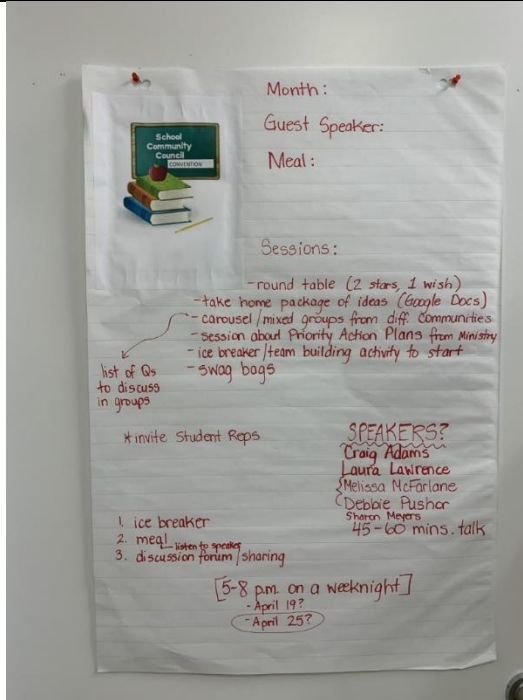 School
Community
Council
CONVENTION
Month:
Guest Speaker:
Meal:
Sessions:
-round table (2 stars, 1 wish)
-take home package of ideas (Google Docs)
-carousel/mixed groups from diff. Communities
-session about Priority Action Plans from Ministry
-ice breaker/team building activity to start
-swag bags
list of Qs
to discuss
in groups
*invite Student Reps
SPEAKERS?
Craig Adams
Laura Lawrence
Melissa McFarlane
Debbie Pushor
Sharon Meyers
45-60 mins. talk
1. ice breaker
2. meal
listen to speaker
3. discussion forum/sharing
[5-8 p.m. on a weeknight]
-April 19?
-April 25?